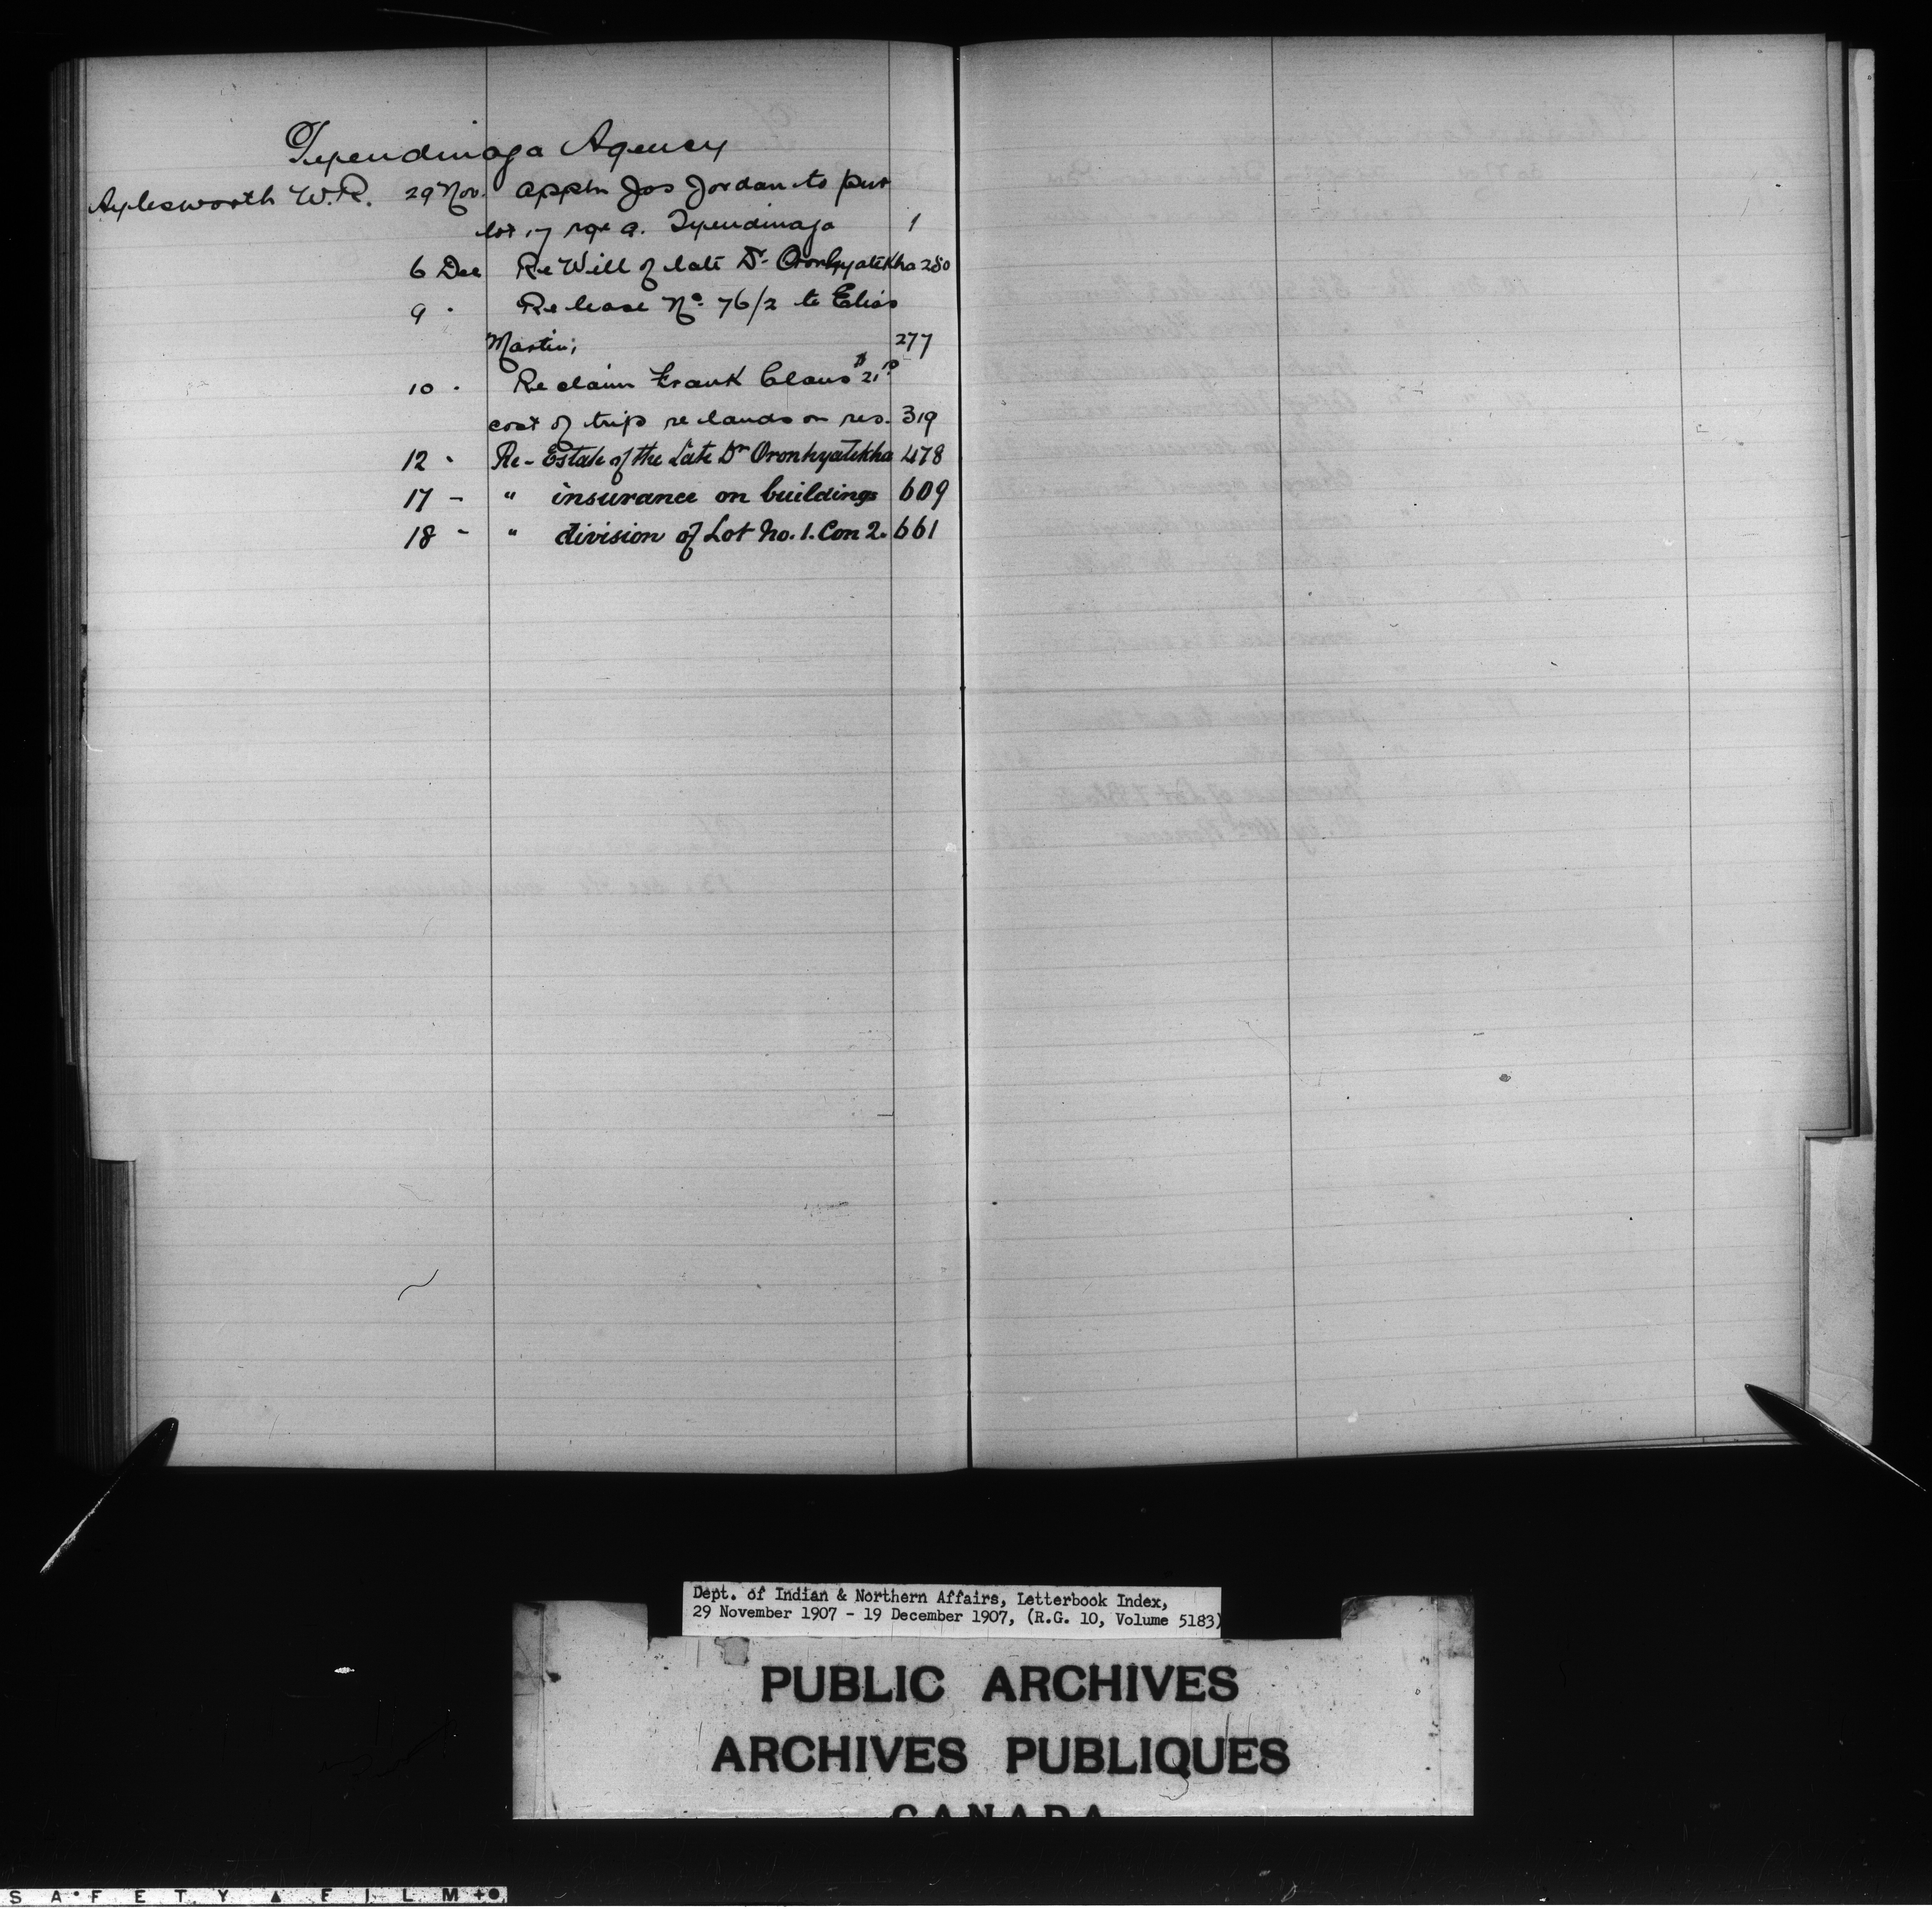 Tyendinaga Agency
Aylesworth W.R. 29 Nov. Appln Jos Jordan to pur
lot 17 rge a. Tyendinaga 1
6 Dec Re Will of late Dr Oronhyatekha 280
9 " Re lease No 76/2 to Elias
Martin; 277
10 " Re claim Frank Claus $21
cost of trip re lands on res. 319
12 " Re- Estate of the Late Dr Oronhyatekha 478
17 - " insurance on buildings 609
18 - " division of Lot No. 1. Con 2. 661
Dept. of Indian & Northern Affairs, Letterbook Index,
29 November 1907 - 19 December 1907, (R.G. 10, Volume 5183)
PUBLIC ARCHIVES
ARCHIVES PUBLIQUES
CANADA
SAFETY FILM